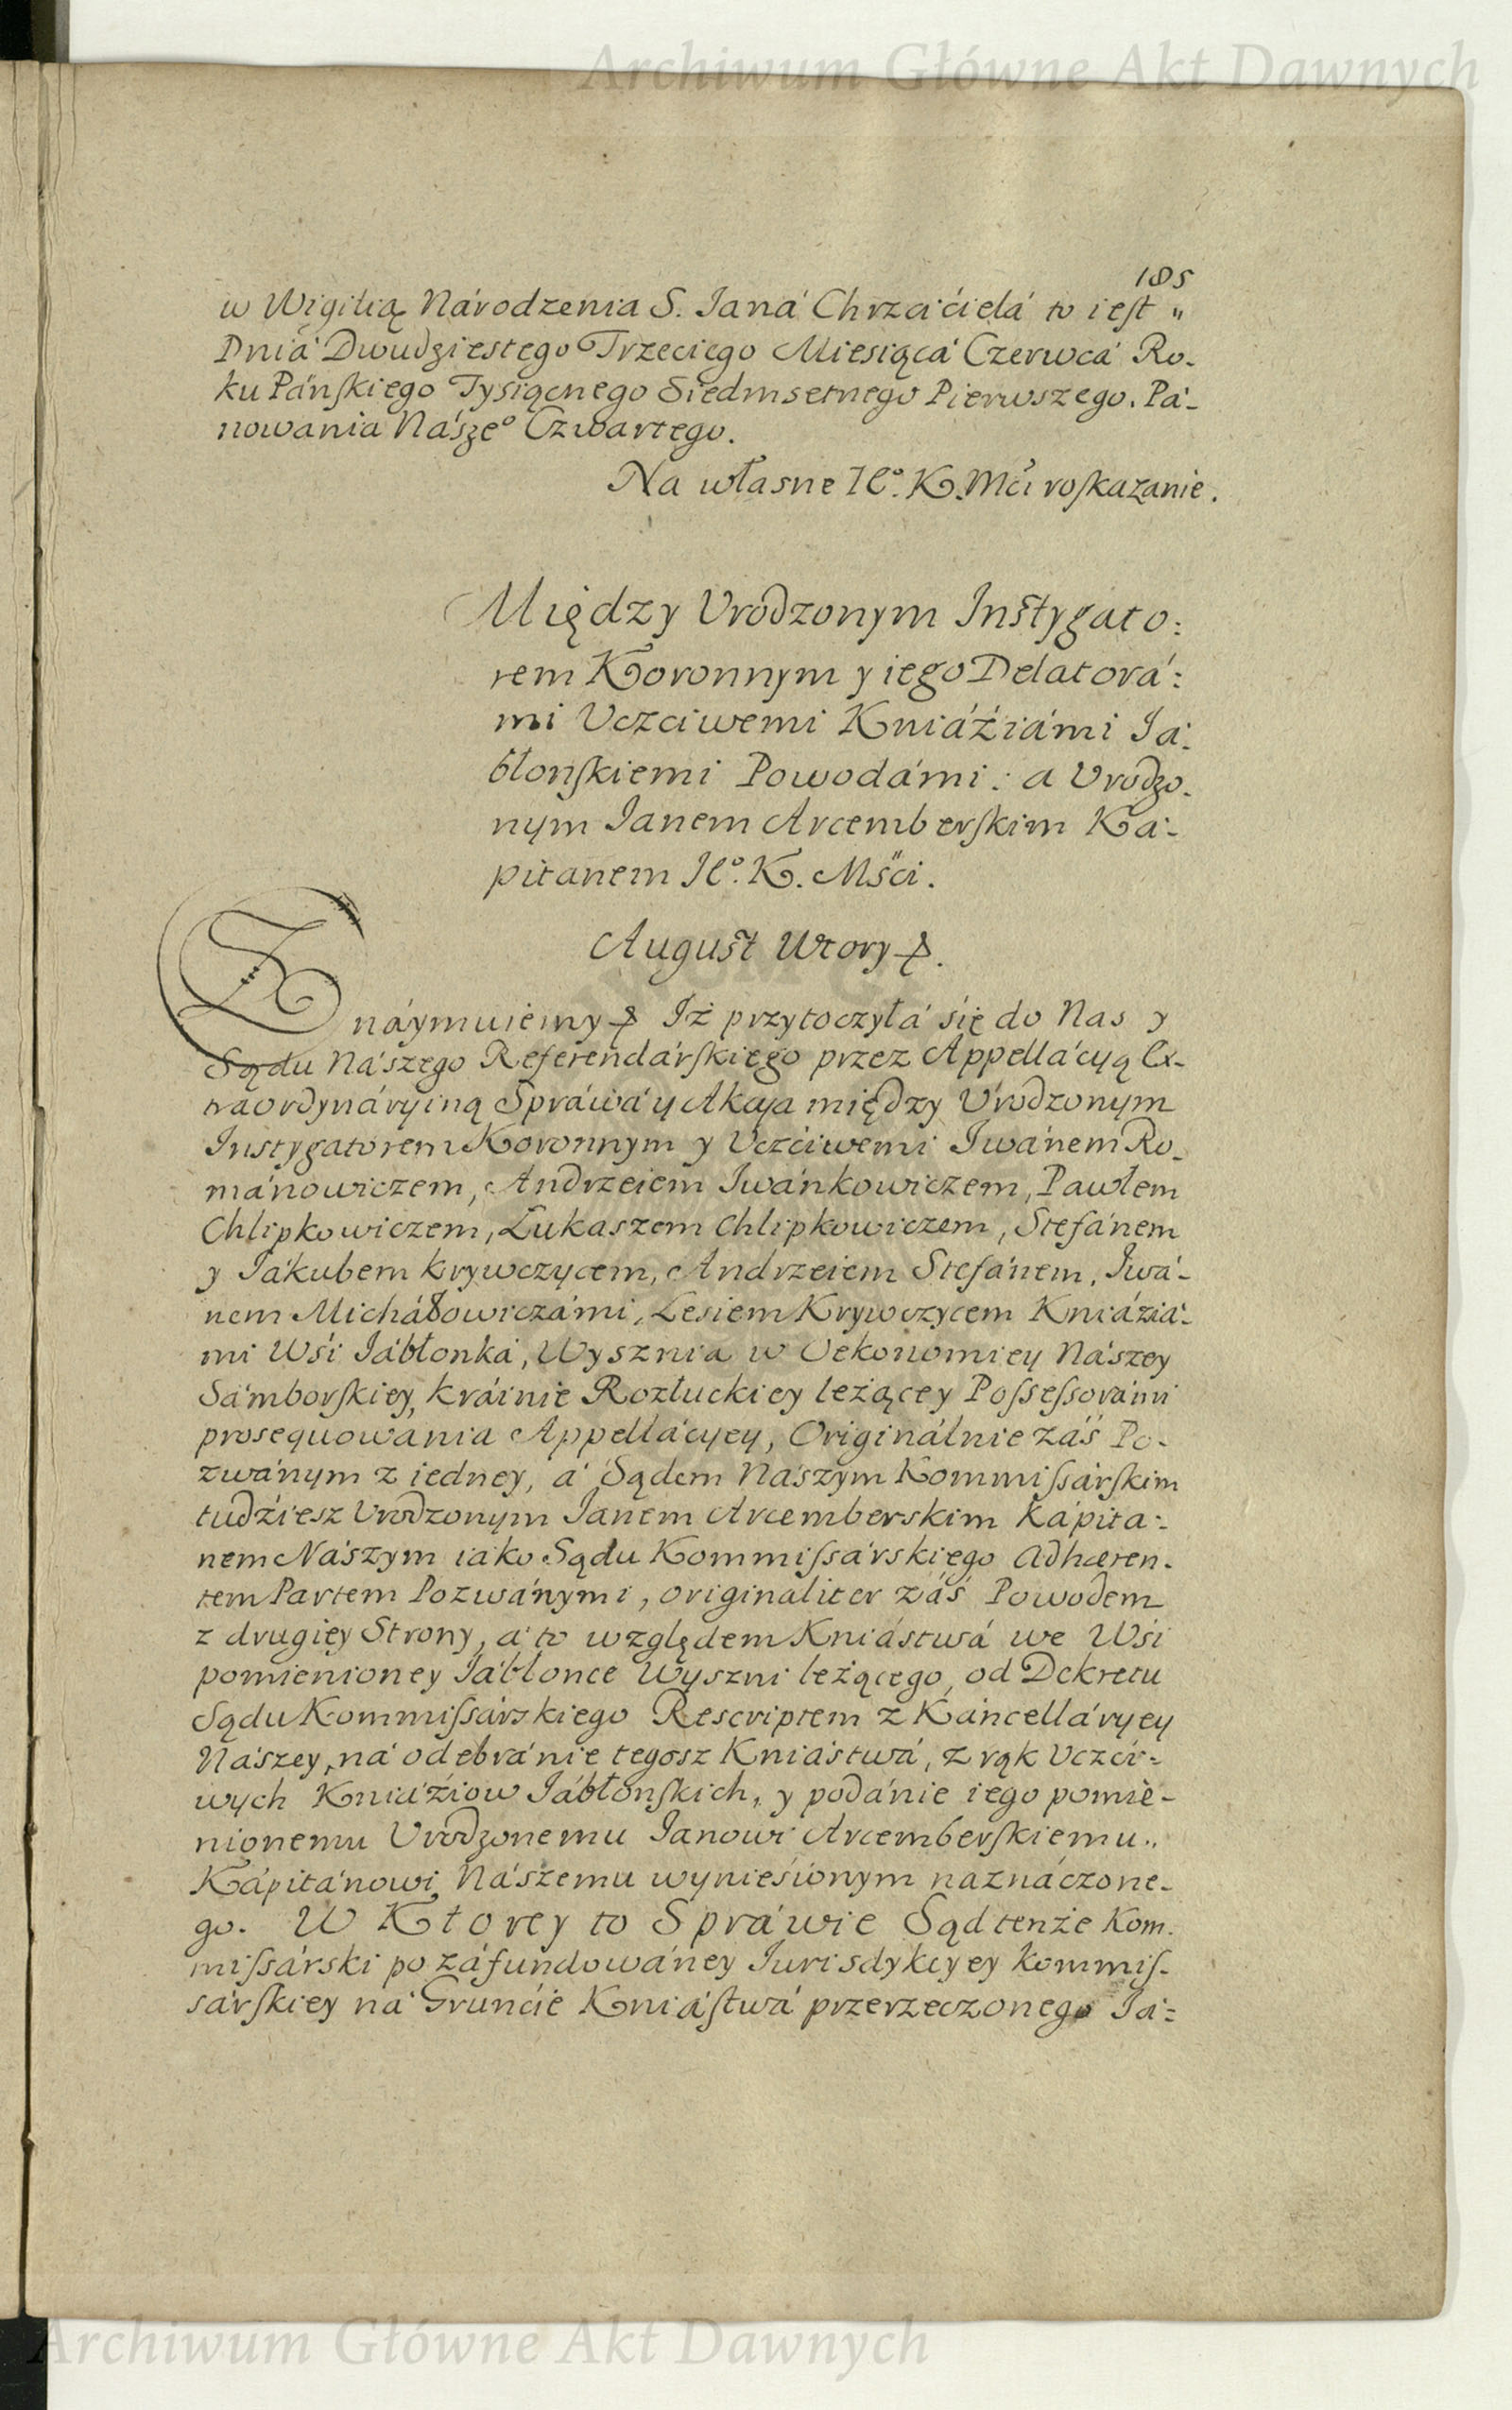 Archiwum Główne Akt Dawnych
185
w Wigilią Národzenia S. Janá Chrzćićielá to iest „
Dniá Dwudziestego Trzeciego Miesiącá Czerwcá Ro-
ku Páńskiego Tysiącnego Siedmsetnego Pierwszego. Pá-
nowania Nászeº Czwartego.
Na własne Jeº. K. Mći roskazanie.
Między Urodzonym Instygato:
rem Koronnym y iego Delatorá:
mi Uczciwemi Kniáźiámi Já:
błonskiemi Powodámi: a Urodzo-
nym Janem Arcemberskim Ká-
pitanem Jeº. K. Mśći.
August Wtory &.
Znáymuiemy & Iż przytoczyłá się do Nas y
Sądu Nászego Referendárskiego przez Appellácyą Ex-
traordynáryiną Spráwá y Akcya między Urodzonym
Instygatorem Koronnym y Uczćiwemi Iwánem Ro-
mánowiczem, Andrzeiem Iwánkowiczem, Pawłem
Chlipkowiczem, Łukaszem Chlipkowiczem, Stefánem
y Jákubem Krywczycem, Andrzeiem Stefánem, Iwá-
nem Michałowiczámi, Lesiem Krywczycem Kniáziá-
mi Wśi Jábłonká, Wysznia w Oekonomiey Nászey
Sámborskiey, kráinie Rozłuckiey leżącey Possessorámi
prosequowania Appellácyey, Originálnie záś Po-
zwánym z iedney, á Sądem Nászym Kommissárskim
tudźiesz Urodzonym Janem Arcemberskim Kápitá-
nem Nászym iáko Sądu Kommissárskiego Adhæren-
tem Partem Pozwánymi, originaliter záś Powodem
z drugiey Strony, á to względem Kniástwá we Wśi
pomienioney Jábłonce Wyszni leżącego, od Dekretu
Sądu Kommissárskiego Rescriptem z Káncelláryey
Nászey, ná odebránie tegosz Kniástwá, z rąk Uczći-
wych Kniáźiow Jábłonskich, y podánie iego pomie-
nionemu Urodzonemu Janowi Arcemberskiemu „
Kápitánowi Nászemu wynieśionym naznáczone-
go. W Ktorey to Spráwie Sąd tenże Kom-
missárski po záfundowáney Jurisdykcyey Kommis-
sárskiey ná Grunćie Kniástwá przerzeczonego Já-
Archiwum Główne Akt Dawnych